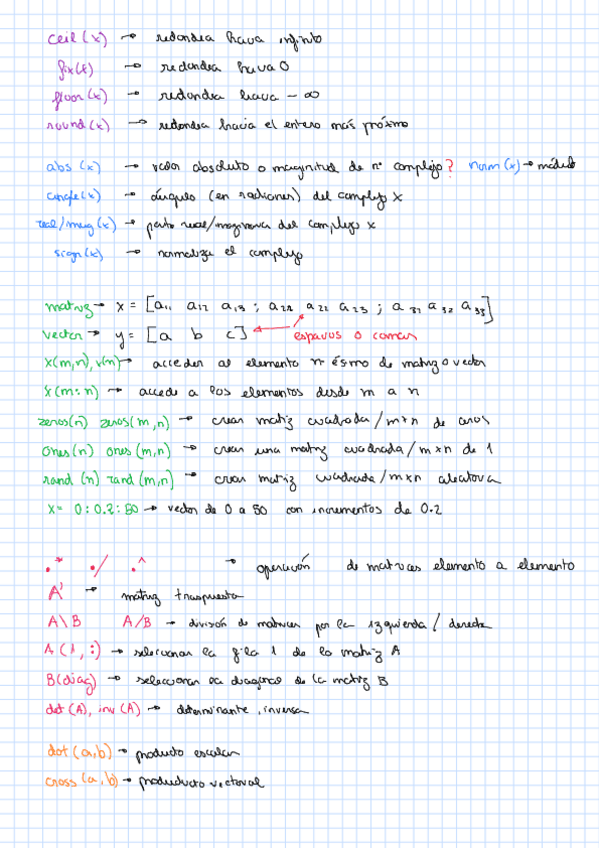 ceil(x) → redondea hacia infinito
fix(x) → redondea hacia 0
floor(x) → redondea hacia - ∞
round(x) → redondea hacia el entero más próximo
abs(x) → valor absoluto o magnitud de nº complejo? norm(x) → módulo
angle(x) → ángulo (en radianes) del complejo x
real/imag(x) → parte real/imaginaria del complejo x
sign(x) → normaliza el complejo
matriz → x = [a₁₁ a₁₂ a₁₃ ; a₂₁ a₂₂ a₂₃ ; a₃₁ a₃₂ a₃₃]
vector → y = [a b c] espacios o comas
x(m,n), v(n) → acceder al elemento n-ésimo de matriz o vector
x(m:n) → accede a los elementos desde m a n
zeros(n) zeros(m,n) → crear matriz cuadrada/m×n de ceros
ones(n) ones(m,n) → crear una matriz cuadrada/m×n de 1
rand(n) rand(m,n) → crear matriz cuadrada/m×n aleatoria
x= 0:0.2:50 → vector de 0 a 50 con incrementos de 0.2
.* ./ .^ → operación de matrices elemento a elemento
A' → matriz traspuesta
A\B A/B → división de matrices por la izquierda/derecha
A(1,:) → seleccionar la fila 1 de la matriz A
B(diag) → seleccionar la diagonal de la matriz B
det(A), inv(A) → determinante, inversa
dot(a,b) → producto escalar
cross(a,b) → produducto vectorial